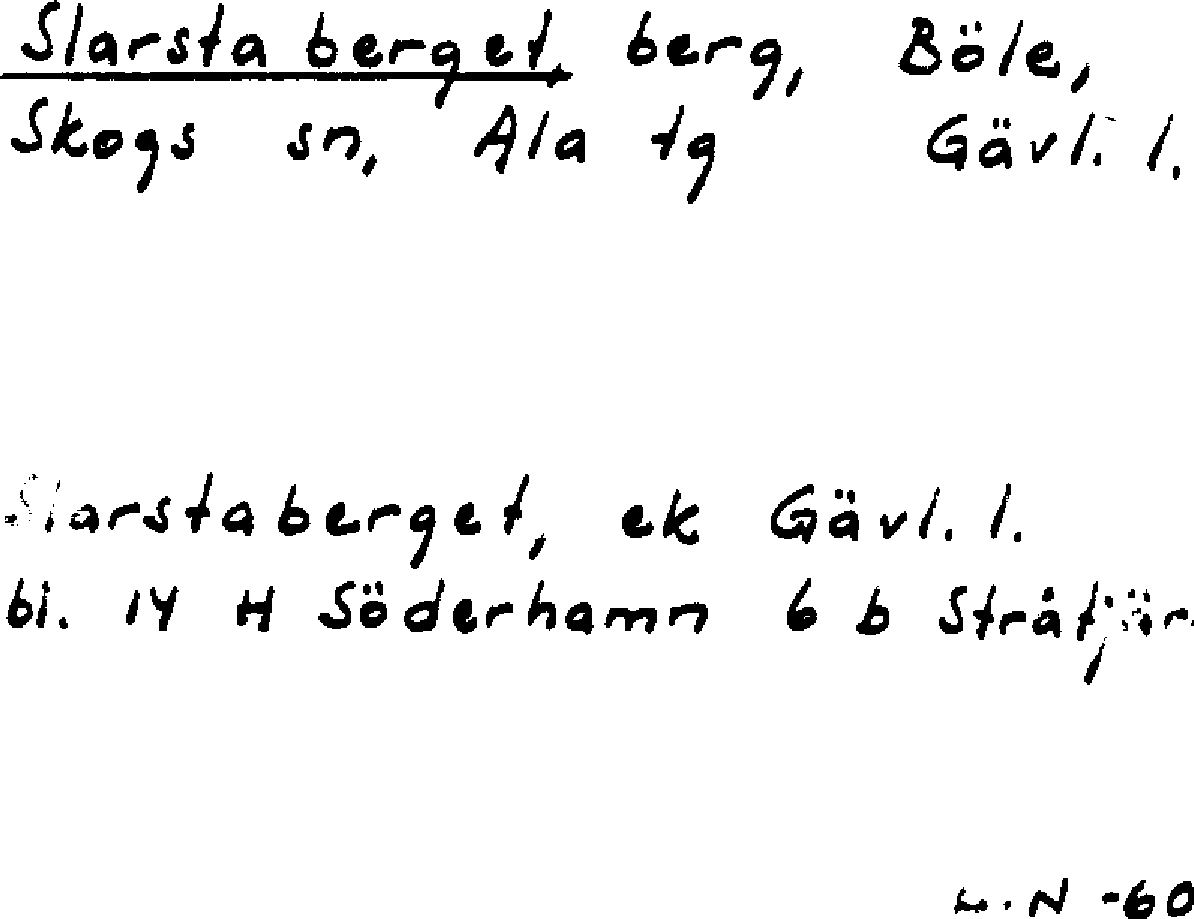 Slarstaberget, berg, Böle,
Skogs sn, Ala tg Gävl. l.
Slarstaberget, ek Gävl. l.
bl. 14 H Söderhamn 6 b
-60